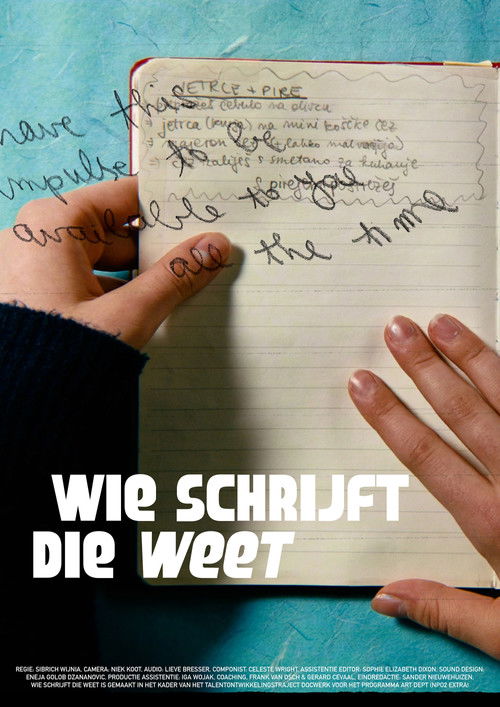 JETRCE + PIRE
have this
impulse to be
available to you
all the time
čebulo na olivcu
jetrca (kurja) na mini koščke čez
majeron
zaliješ s smetano za kuhanje
WIE SCHRIJFT
DIE WEET
REGIE: SIBRICH WIJNIA. CAMERA: NIEK KOOT. AUDIO: LIEVE BRESSER. COMPONIST: CELESTE WRIGHT. ASSISTENTIE EDITOR: SOPHIE ELIZABETH DIXON. SOUND DESIGN:
ENEJA GOLOB DZANANOVIC. PRODUCTIE ASSISTENTIE: IGA WOJAK. COACHING: FRANK VAN OSCH & GERARD CEVAAL. EINDREDACTIE: SANDER NIEUWEHUIZEN.
WIE SCHRIJFT DIE WEET IS GEMAAKT IN HET KADER VAN HET TALENTONTWIKKELINGSTRAJECT DOCWERK VOOR HET PROGRAMMA ART DEPT (NPO2 EXTRA).